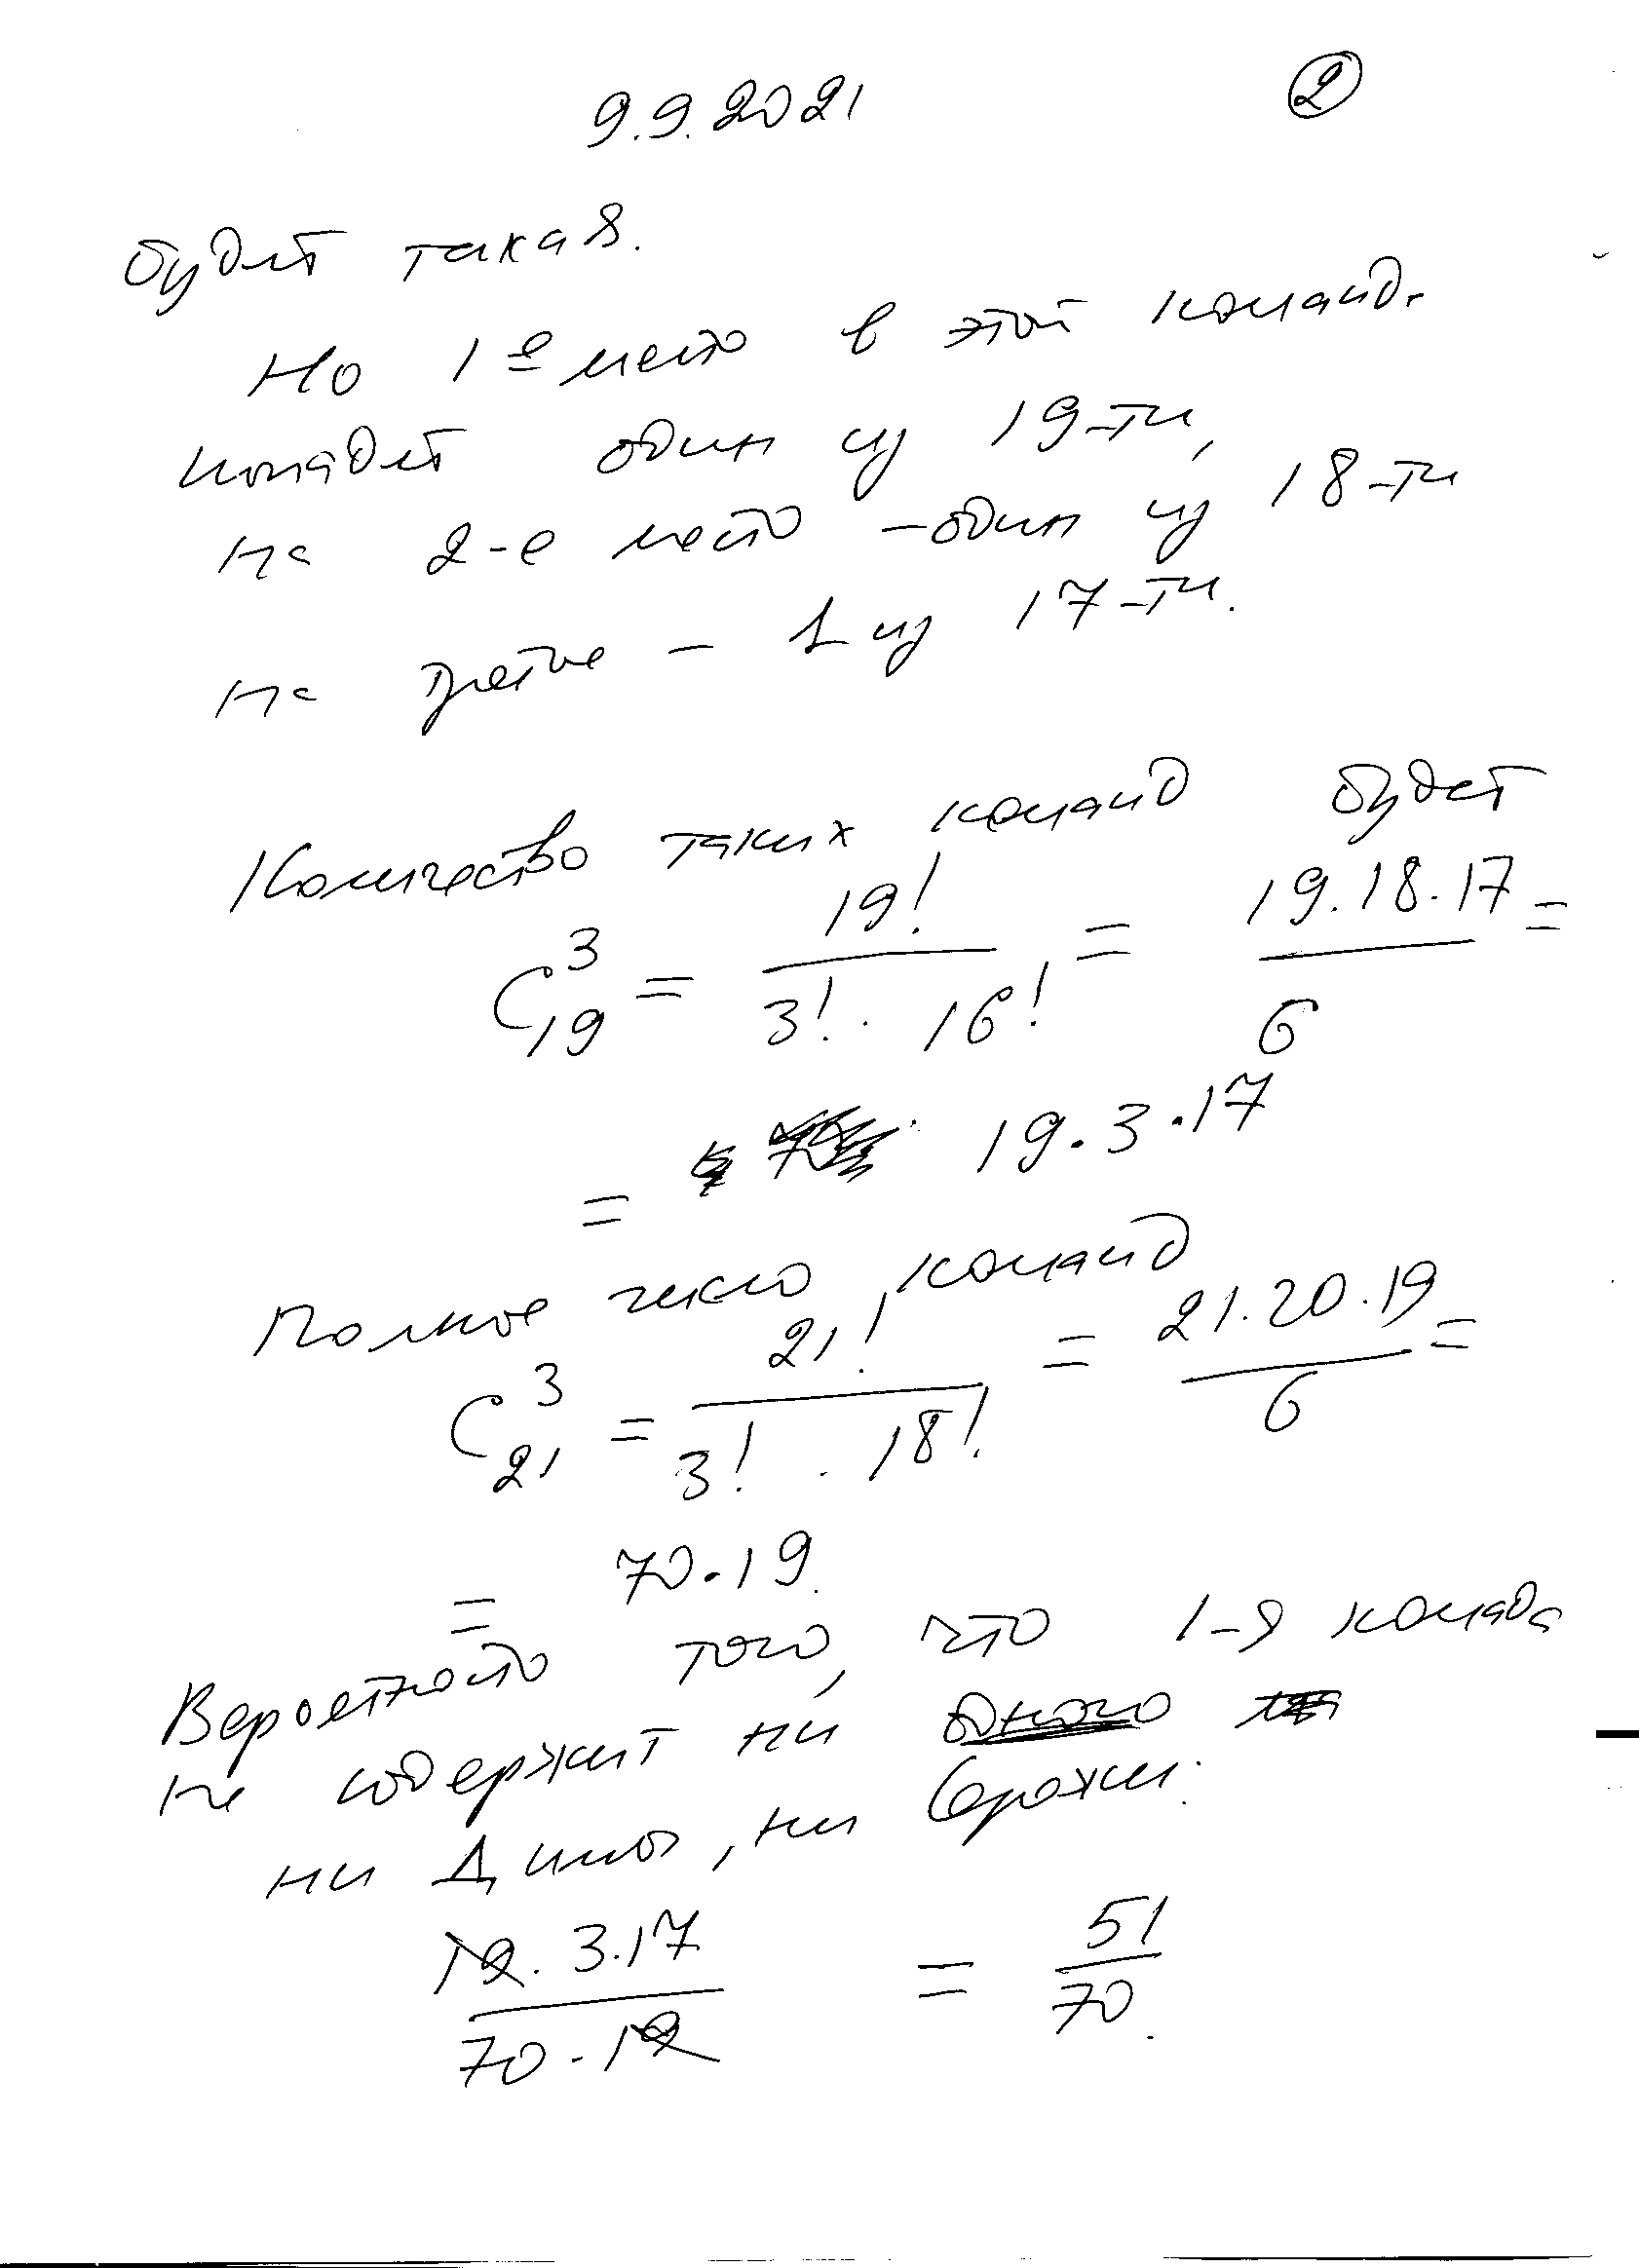 9.9.2021 2
будет такая.
На 1е место в этой команд.
попадет один из 19-ти,
на 2-е место – один из 18-ти
на третье – 1 из 17-ти.
Количество таких команд будет
C³₁₉ = 19! / 3! · 16! = 19.18.17 / 6 =
= 19·3·17
Полное число команд
C³₂₁ = 21! / 3! · 18! = 21.20.19 / 6 =
= 70·19
Вероятность того, что 1-я команда
не содержит ни одного
ни Димы, ни Сережи.
19·3·17 / 70·19 = 51/70.